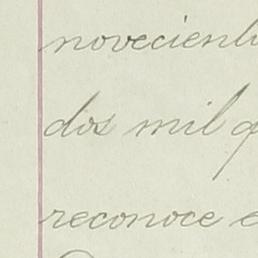 novecient
dos mil q
reconoce e